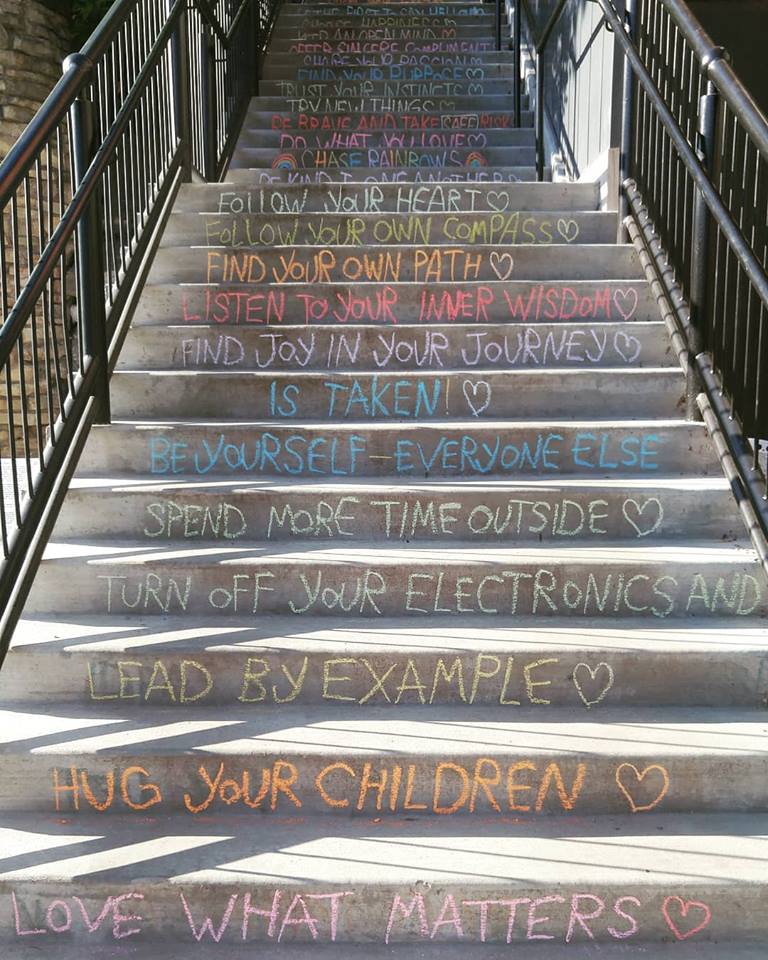 CHOOSE HAPPINESS
KEEP AN OPEN MIND
OFFER SINCERE COMPLIMENTS
SHARE YOUR PASSION
FIND YOUR PURPOSE
TRUST YOUR INSTINCTS
TRY NEW THINGS
BE BRAVE AND TAKE SAFE RISKS
DO WHAT YOU LOVE
CHASE RAINBOWS
BE KIND TO ONE ANOTHER
FOLLOW YOUR HEART
FOLLOW YOUR OWN COMPASS
FIND YOUR OWN PATH
LISTEN TO YOUR INNER WISDOM
FIND JOY IN YOUR JOURNEY
IS TAKEN!
BE YOURSELF-EVERYONE ELSE
SPEND MORE TIME OUTSIDE
TURN OFF YOUR ELECTRONICS AND
LEAD BY EXAMPLE
HUG YOUR CHILDREN
LOVE WHAT MATTERS